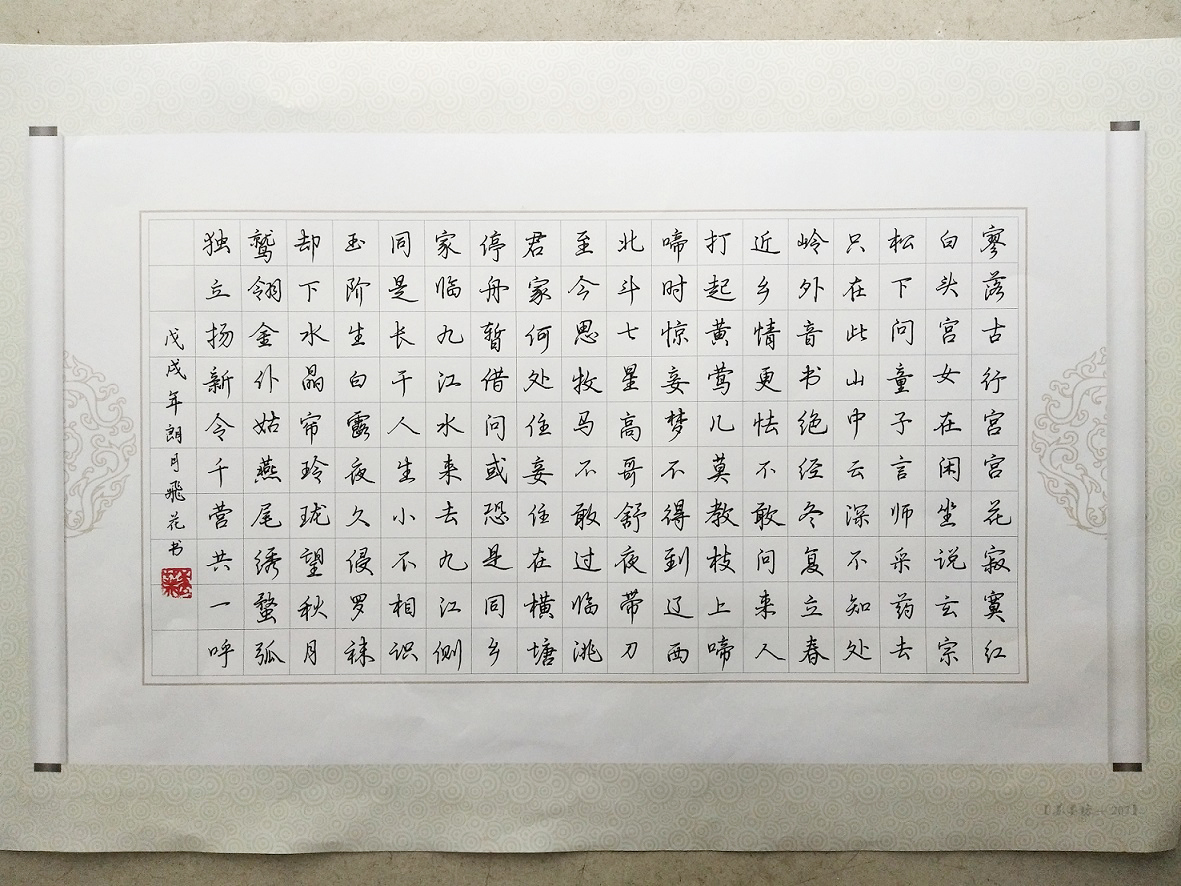 寥落古行宫宫花寂寞红
白头宫女在闲坐说玄宗
松下问童子言师采药去
只在此山中云深不知处
岭外音书绝经冬复立春
近乡情更怯不敢问来人
打起黄莺儿莫教枝上啼
啼时惊妾梦不得到辽西
北斗七星高哥舒夜带刀
至今思牧马不敢过临洮
君家何处住妾住在横塘
停舟暂借问或恐是同乡
家临九江水来去九江侧
同是长干人生小不相识
玉阶生白露夜久侵罗袜
却下水晶帘玲珑望秋月
鹫翎金仆姑燕尾绣蝥弧
独立扬新令千营共一呼
戊戌年朗月飛花书